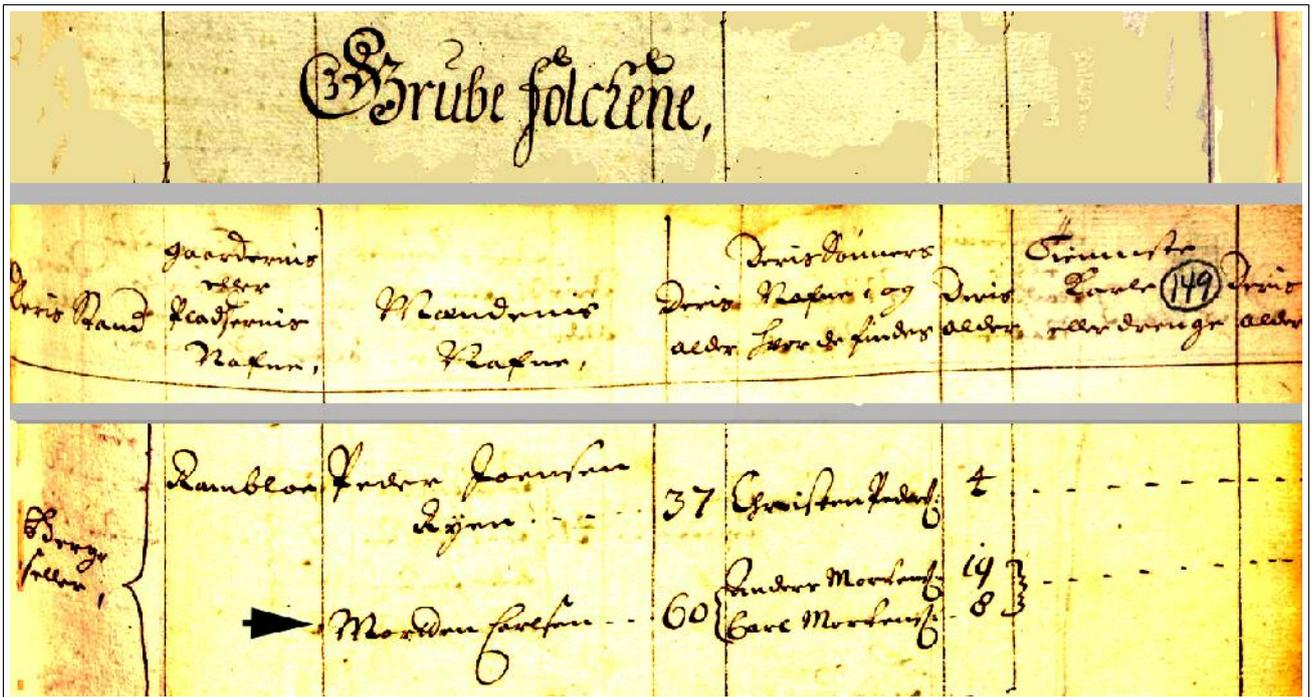 Grube folchene,
Deris Stand
gaardernis
eller
Pladsernis
Nafne,
Mandenis
Nafne,
Deris
alder
Deris Sønners
Nafne, og
hvor de findes
Deris
alder
Tienniste
Karle 149
eller drenge
Deris
alder
Berge
seller,
Rambloe Peder Joensen 37 Christen Peders: 4
Ryen
Anders Mortens: 19
Morten Carlsen 60 Carl Mortens: 8